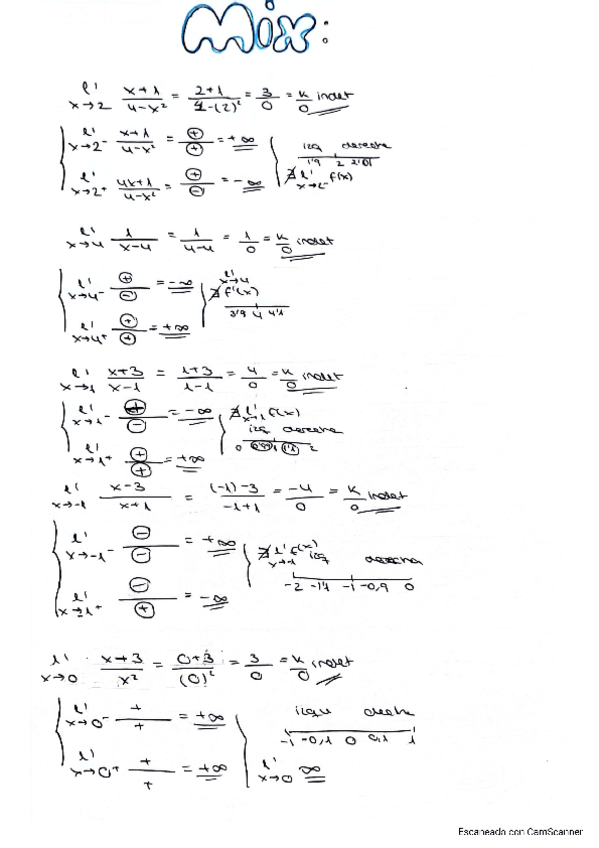 Mix:
l' x→2 x+1/4-x² = 2+1/4-(2)² = 3/0 = k/0 indet
l' x→2⁻ x+1/4-x² = +/+ = +∞ izq derecha
1'9 2 2'01
l' x→2⁺ 4x+1/4-x² = +/- = -∞ ∄ l' x→2 f(x)
l' x→4 1/x-4 = 1/4-4 = 1/0 = k/0 indet
l' x→4⁻ +/- = -∞ ∄ l' x→4 f'(x)
3'9 4 4'1
l' x→4⁺ +/+ = +∞
l' x→1 x+3/x-1 = 1+3/1-1 = 4/0 = k/0 indet
l' x→1⁻ +/- = -∞ ∄ l' x→1 f(x)
izq derecha
l' x→1⁺ +/+ = +∞ 0 0'99 1 1'1 2
l' x→-1 x-3/x+1 = (-1)-3/-1+1 = -4/0 = k/0 indet
l' x→-1⁻ -/- = +∞ ∄ l' x→-1 f(x) izq derecha
-2 -1'1 -1 -0,9 0
l' x→-1⁺ -/+ = -∞
l' x→0 x+3/x² = 0+3/(0)² = 3/0 = k/0 indet
l' x→0⁻ +/+ = +∞ izqu derecha
-1 -0,1 0 0,1 1
l' x→0⁺ +/+ = +∞ l' x→0 ∞
Escaneado con CamScanner